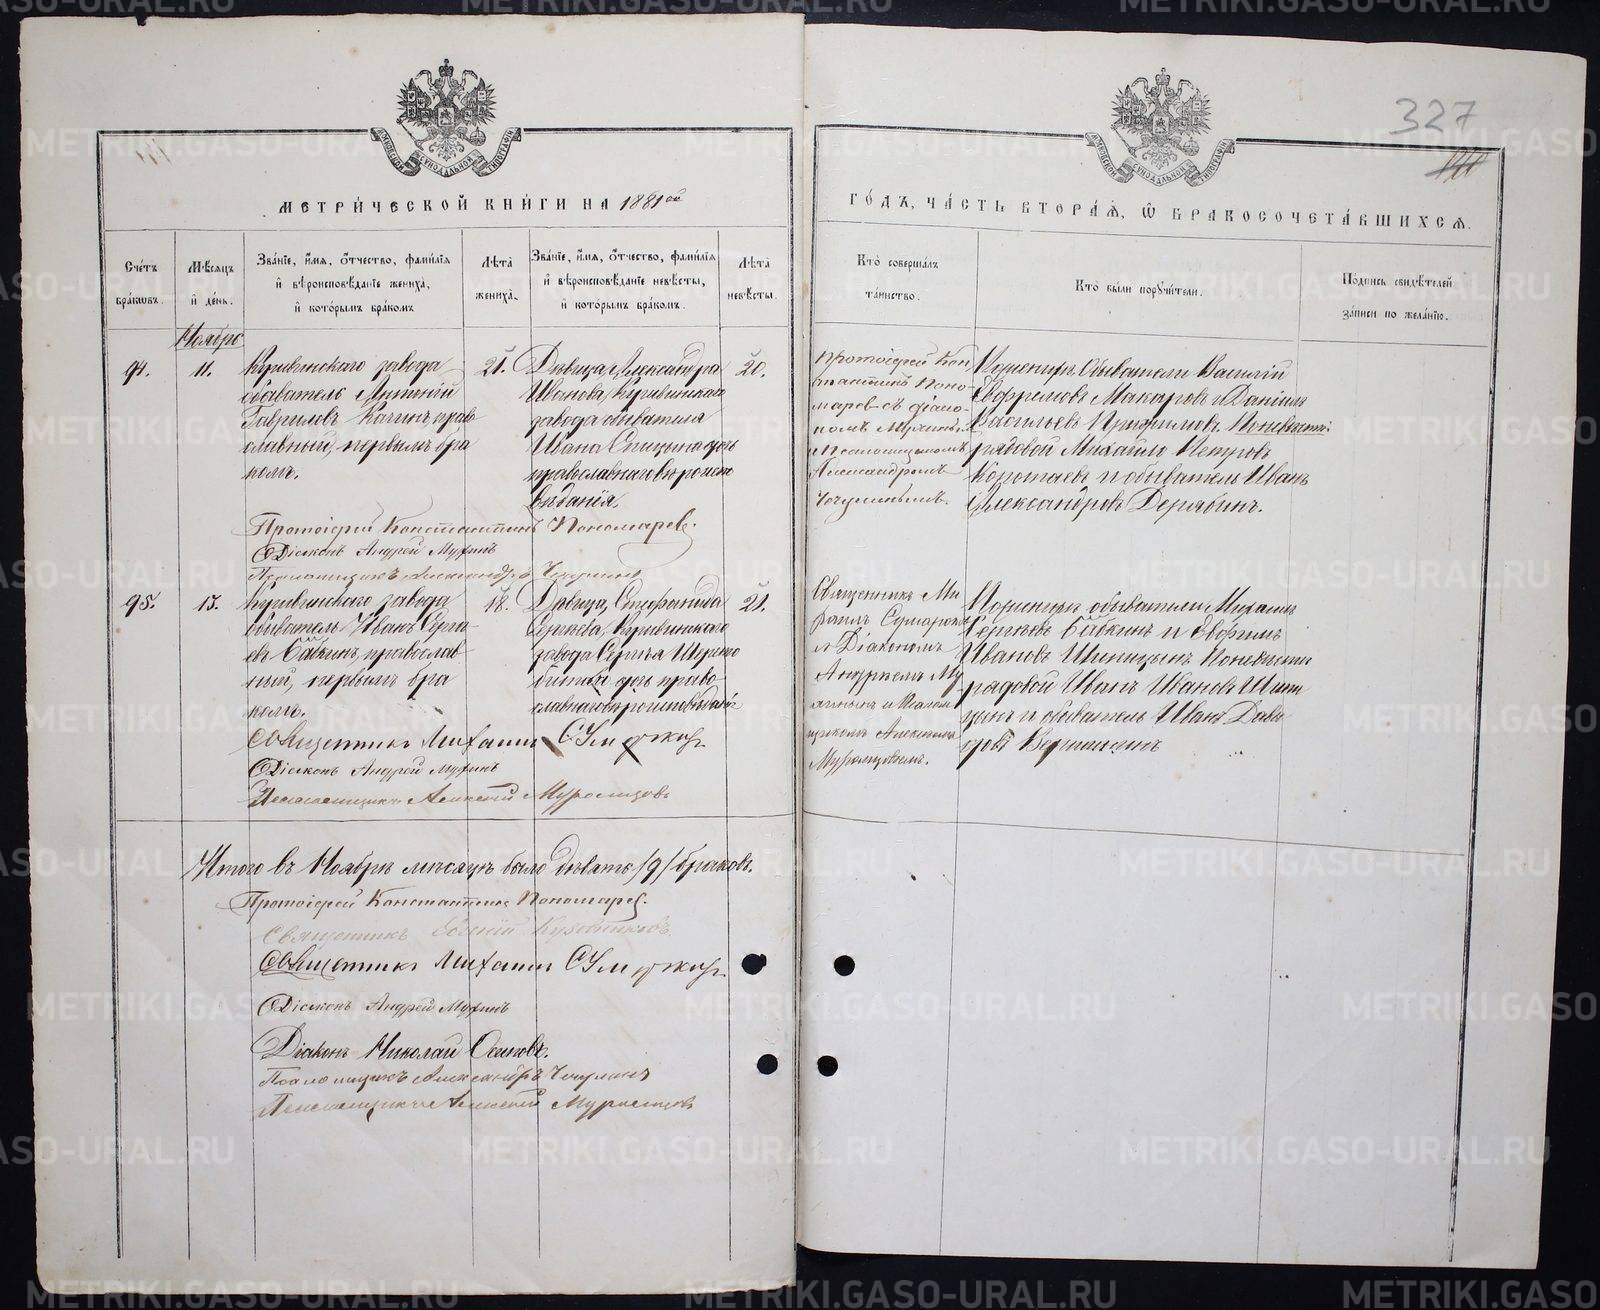 327
МЕТРИ́ЧЕСКОЙ КНИ́ГИ НА 1881ой
ГО́ДЪ, ЧА́СТЬ ВТОРА́Я, Ѡ БРАКОСОЧЕТА́ВШИХСЯ.
Сче́тъ бра́ковъ.
Мѣ́сяцъ и де́нь.
Зва́нїе, и́мя, ѻ́тчество, фами́лїя и вѣроисповѣ́данїе жениха̀, и кото́рымъ бра́комъ
Лѣ́та жениха̀.
Зва́нїе, и́мя, ѻ́тчество, фами́лїя и вѣроисповѣ́данїе невѣ́сты, и кото́рымъ бра́комъ.
Лѣ́та невѣ́сты.
Кто̀ соверша́лъ та́инство.
Кто̀ бы́ли порꙋчи́тели.
По́дпись свидѣ́телей за́писи по жела́нїю.
Ноябрь
94.
11.
Кушвинскаго завода
обыватель
Гавриловъ
славный, первымъ бра
комъ.
21.
Дѣвица Александра
Иванова, Кушвинскаго
завода обывателя
Ивана
православнаго вѣроиспо
вѣданія.
20.
Протоіерей Кон
стантинъ Поно
маревъ съ діако
номъ Мухинымъ
и Псаломщикомъ
Александромъ
По женихѣ: Обыватели Василій
Ефремовъ Макаровъ и Даніилъ
Васильевъ По невѣстѣ:
рядовой Михайло Петровъ
Коротаевъ и обыватель Иванъ
Александровъ Дерябинъ.
Протоіерей Константинъ Пономаревъ.
Діаконъ Андрей Мухинъ
Псаломщикъ Александръ
95.
15.
Кушвинскаго завода
обыватель Иванъ Серге
евъ Бабкинъ, православ
ный, первымъ бра
комъ.
18.
Дѣвица, Стефанида
Сергѣева, Кушвинскаго
завода Сергѣя
дочь право
славнаго вѣроисповѣданія
21.
Священникъ Ми
хаилъ
и Діакономъ
Андреемъ Му
хинымъ и Псалом
щикомъ Алексѣемъ
Муромцовымъ.
По женихѣ обыватели Михаилъ
Сергѣевъ Бабкинъ и Ефимъ
Ивановъ Шиницынъ По невѣстѣ
рядовой Иванъ Ивановъ Шини
цынъ и обыватель Иванъ Давы
довъ
Священникъ Михаилъ
Діаконъ Андрей Мухинъ
Псаломщикъ Алексѣй Муромцовъ
Итого въ Ноябрѣ мѣсяцѣ было девять /9/ браковъ.
Протоіерей Константинъ Пономаревъ.
Священникъ
Священникъ Михаилъ
Діаконъ Андрей Мухинъ
Діаконъ Николай Осиповъ.
Псаломщикъ Александръ
Псаломщикъ Алексѣй Муромцовъ
METRIKI.GASO-URAL.RU